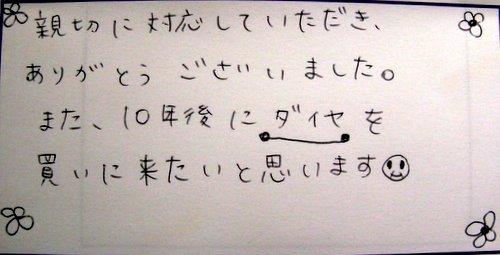 親切に対応していただき、
ありがとう ございました。
また、10年後にダイヤを
買いに来たいと思います